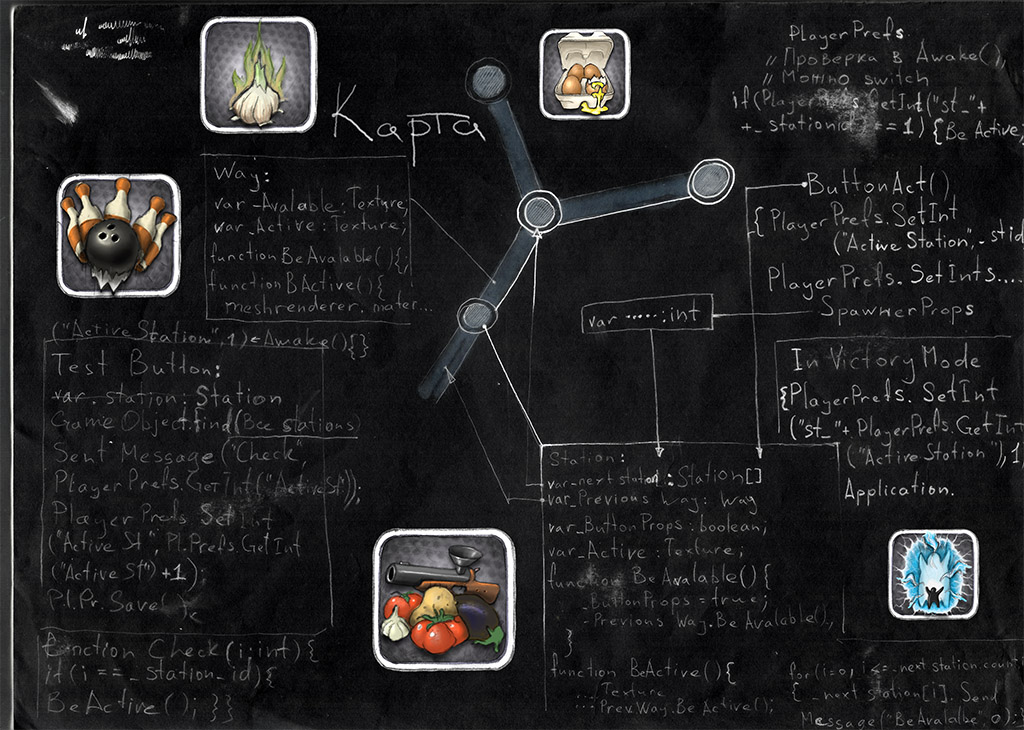 Карта
PlayerPrefs
// Проверка в Awake(),
// Можно switch
if(PlayerPrefs.GetInt("st_"+
+_stationid) == 1) {Be Active,
Way:
var_Avalable: Texture,
var_Active: Texture;
function BeAvalable(){;
function BActive(){
meshrenderer. mater...
ButtonAct(),
{PlayerPrefs.SetInt
("Active Station",_stid
PlayerPrefs.SetInts....
SpawnerProps
var ......:int
("Active Station",1)<Awake(){}
Test Button:
var. station: Station
Game Object.find(Все stations)
Sent Message ("Check",
PlayerPrefs.GetInt("ActiveSt"));
Player Prefs SetInt
("Active St", Pl.Prefs.GetInt
("Active St") +1);
Pl.Pr. Save();
function Check(i:int){
if(i == _station_id){
BeActive(); }}
In Victory Mode
{PlayerPrefs. SetInt
("st_"+ PlayerPrefs.GetInt
("Active Station"),1
Application.
Station:
var_next station: Station[]
var_Previous Way: Way
var_ButtonProps: boolean;
var_Active: Texture;
function BeAvalable(){
_ButtonProps = true;
_Previous Way.BeAvalable(),
}
function BeActive(){
...Texture
...Prev.Way.Be Active();
for(i=0, i<=_next station.count,
{ _next station[i]. Send
Message("BeAvalalbe", 0);}